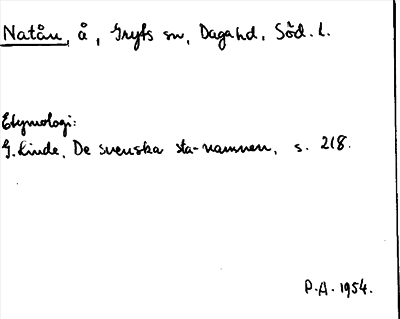 Natån, å, Gryts sn, Daga hd, Söd. l.
Etymologi:
G. Linde, De svenska sta-namnen, s. 218.
P.A. 1954.